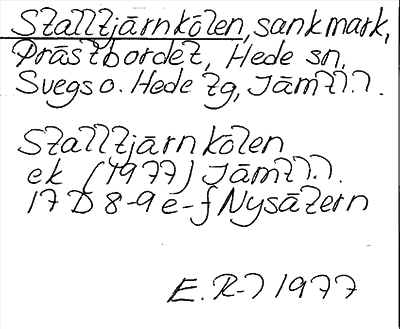 Stalltjärnkölen, sankmark,
Prästbordet, Hede sn,
Svegs o. Hede tg, Jämtl.l.
Stalltjärnkölen
ek (1977) Jämtl.l.
17 D 8-9 e-f Nysätern
E. R-J 1977